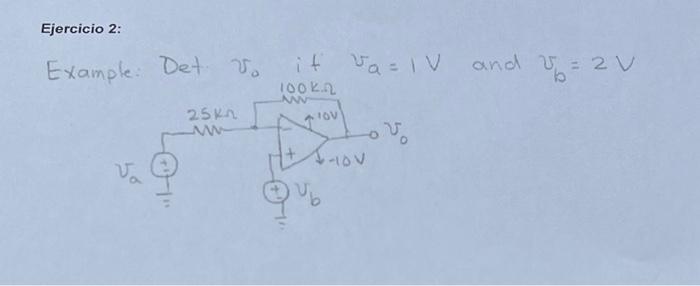 Ejercicio 2:
Example: Det. v₀ if vₐ = 1 V and v_b = 2 V
100 kΩ
25 kΩ
10V
v₀
+
-10V
vₐ
+
v_b